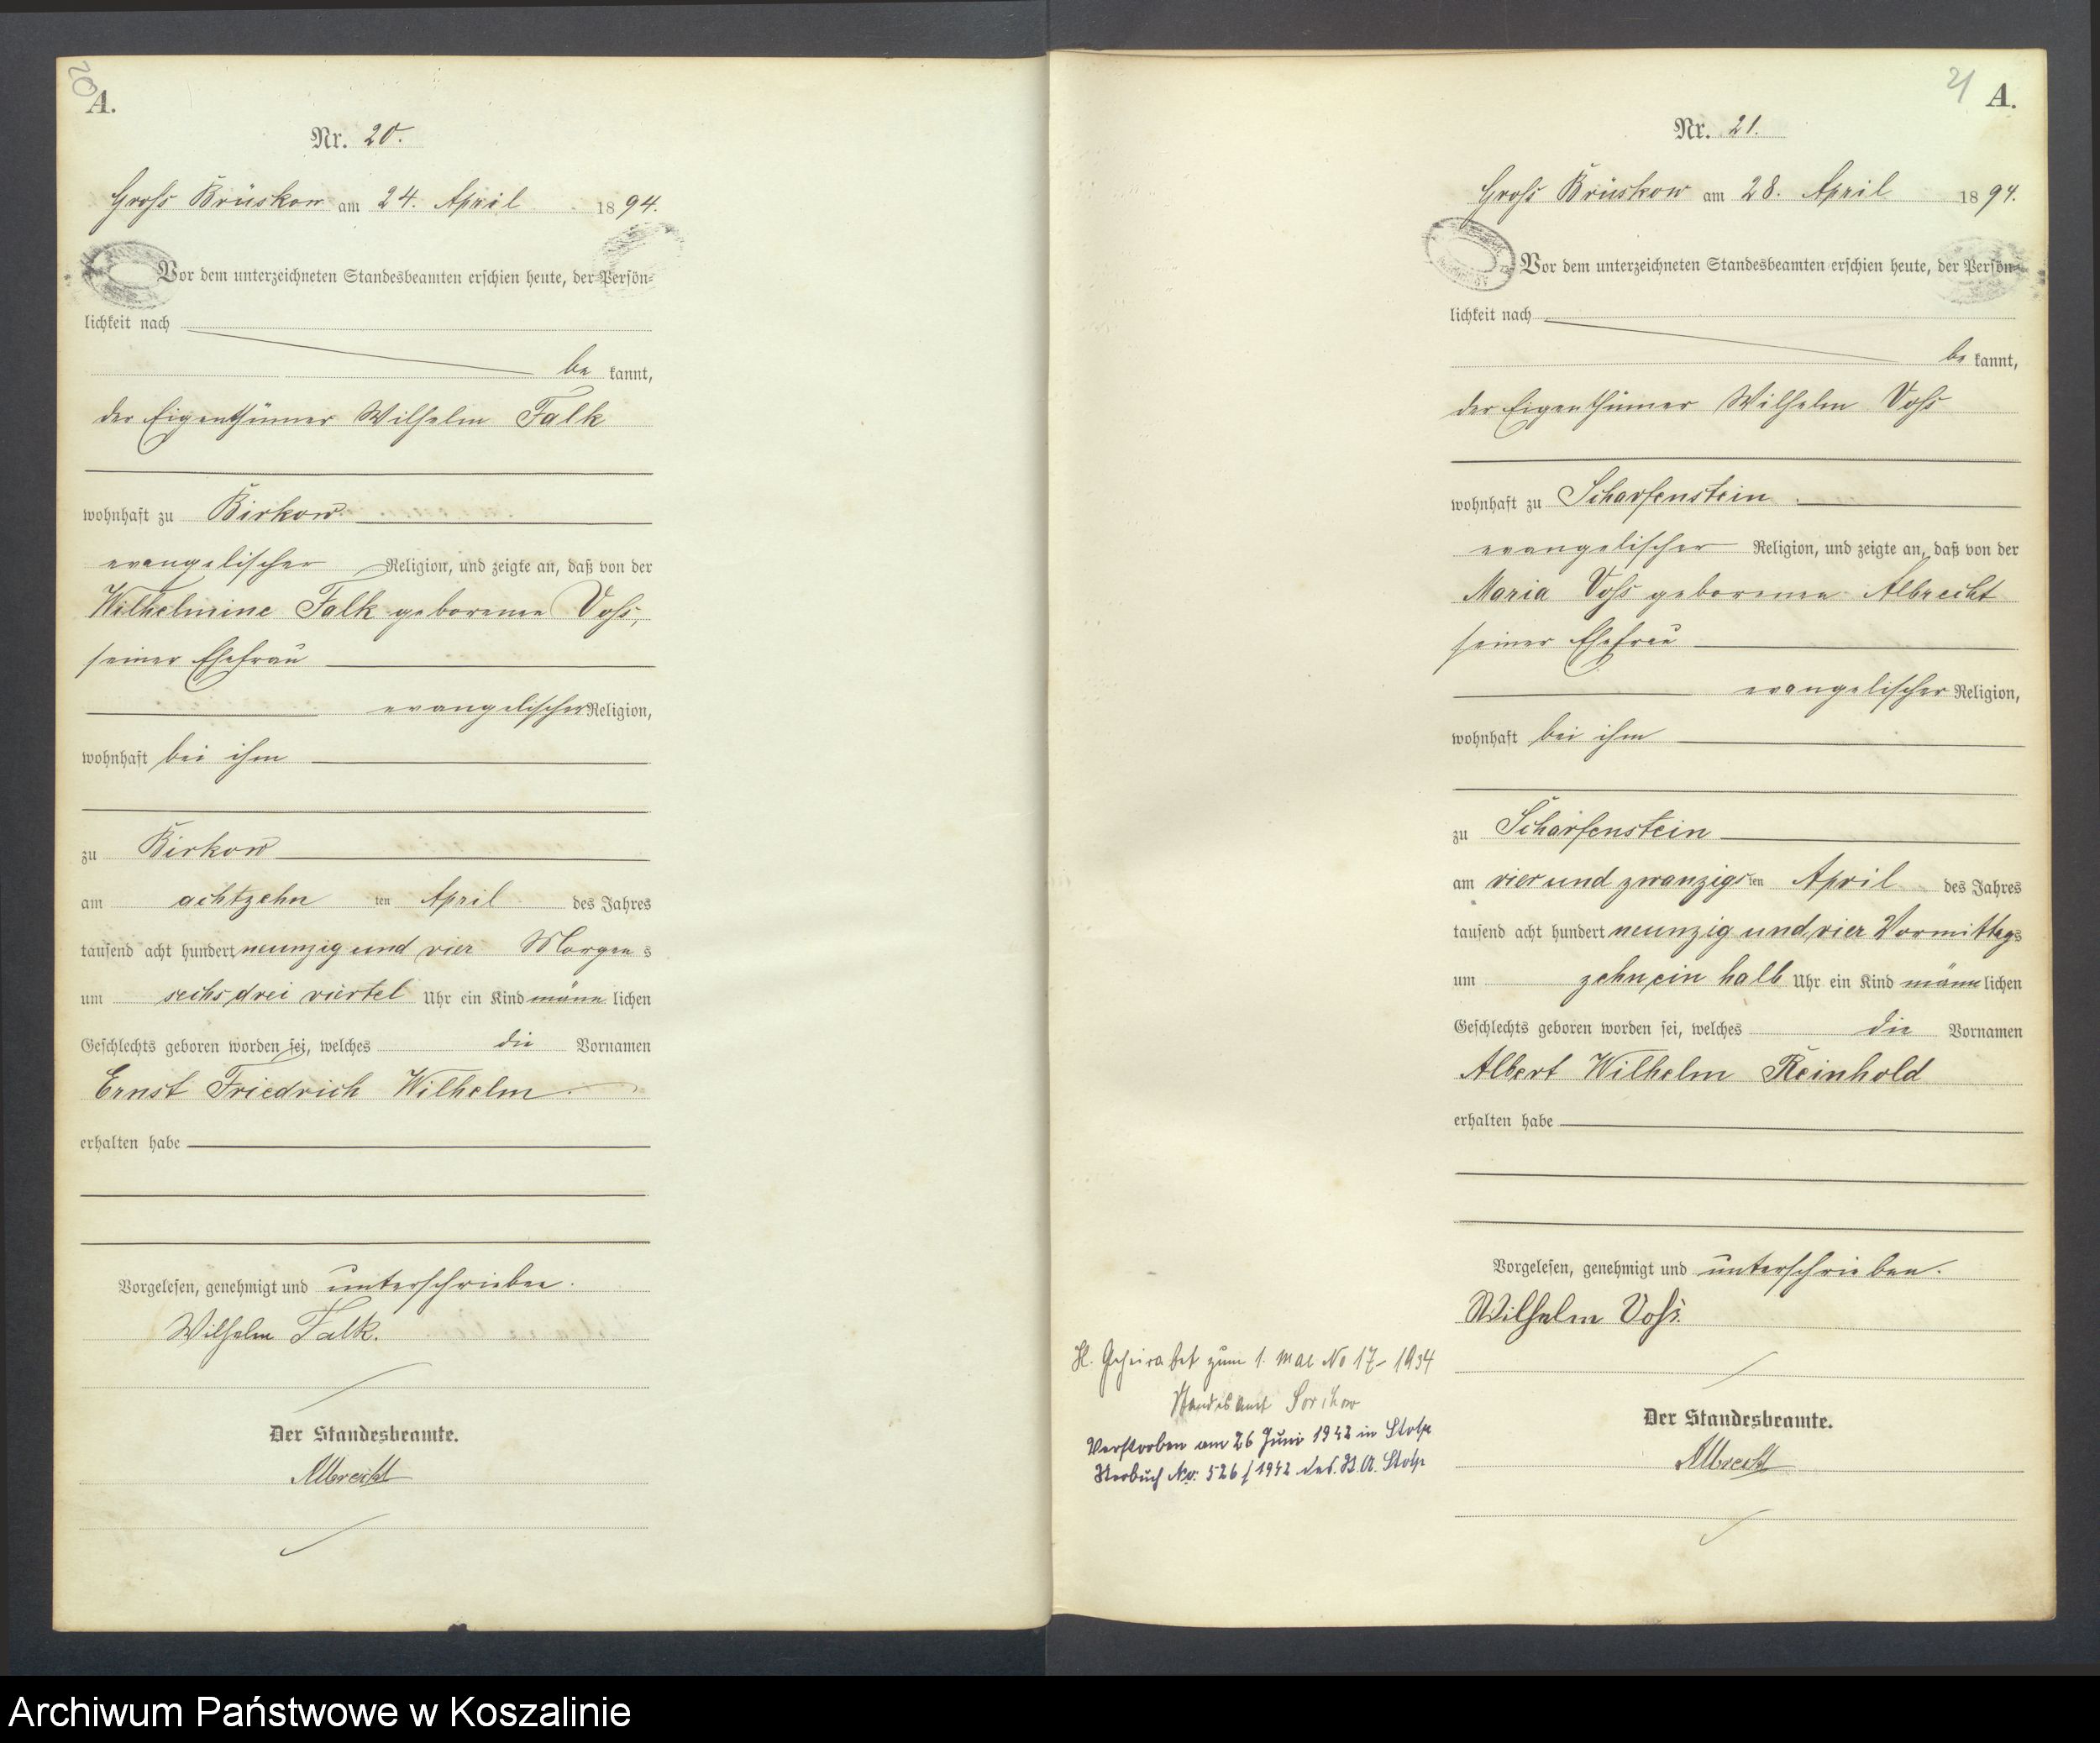 20
A.
Nr. 20.
Groß Brüskow am 24. April 1894.
Vor dem unterzeichneten Standesbeamten erschien heute, der Persön=
lichkeit nach
be kannt,
der Eigenthümer Wilhelm Falk
wohnhaft zu Birkow
evangelischer Religion, und zeigte an, daß von der
Wilhelmine Falk geborenen Voß,
seiner Ehefrau
evangelischer Religion,
wohnhaft bei ihm
zu Birkow
am achtzehn ten April des Jahres
tausend acht hundert neunzig und vier Morgen s
um sechs drei viertel Uhr ein Kind männ lichen
Geschlechts geboren worden sei, welches die Vornamen
Ernst Friedrich Wilhelm
erhalten habe
Vorgelesen, genehmigt und unterschrieben.
Wilhelm Falk.
Der Standesbeamte.
Albrecht
21
A.
Nr. 21.
Groß Brüskow am 28. April 1894.
Vor dem unterzeichneten Standesbeamten erschien heute, der Persön=
lichkeit nach
be kannt,
der Eigenthümer Wilhelm Voß
wohnhaft zu Scharfenstein
evangelischer Religion, und zeigte an, daß von der
Maria Voß geborenen Albrecht
seiner Ehefrau
evangelischer Religion,
wohnhaft bei ihm
zu Scharfenstein
am vier und zwanzigs ten April des Jahres
tausend acht hundert neunzig und vier Vormittags
um zehn ein halb Uhr ein Kind männ lichen
Geschlechts geboren worden sei, welches die Vornamen
Albert Wilhelm Reinhold
erhalten habe
Vorgelesen, genehmigt und unterschrieben.
Wilhelm Voß.
Der Standesbeamte.
Albrecht
Geheiratet zum 1. Mal No 17 - 1934
Standesamt
Verstorben am 26 Juni 1942 in Stolp
Sterbuch Nr. 526/1942 des St. A. Stolp
Archiwum Państwowe w Koszalinie